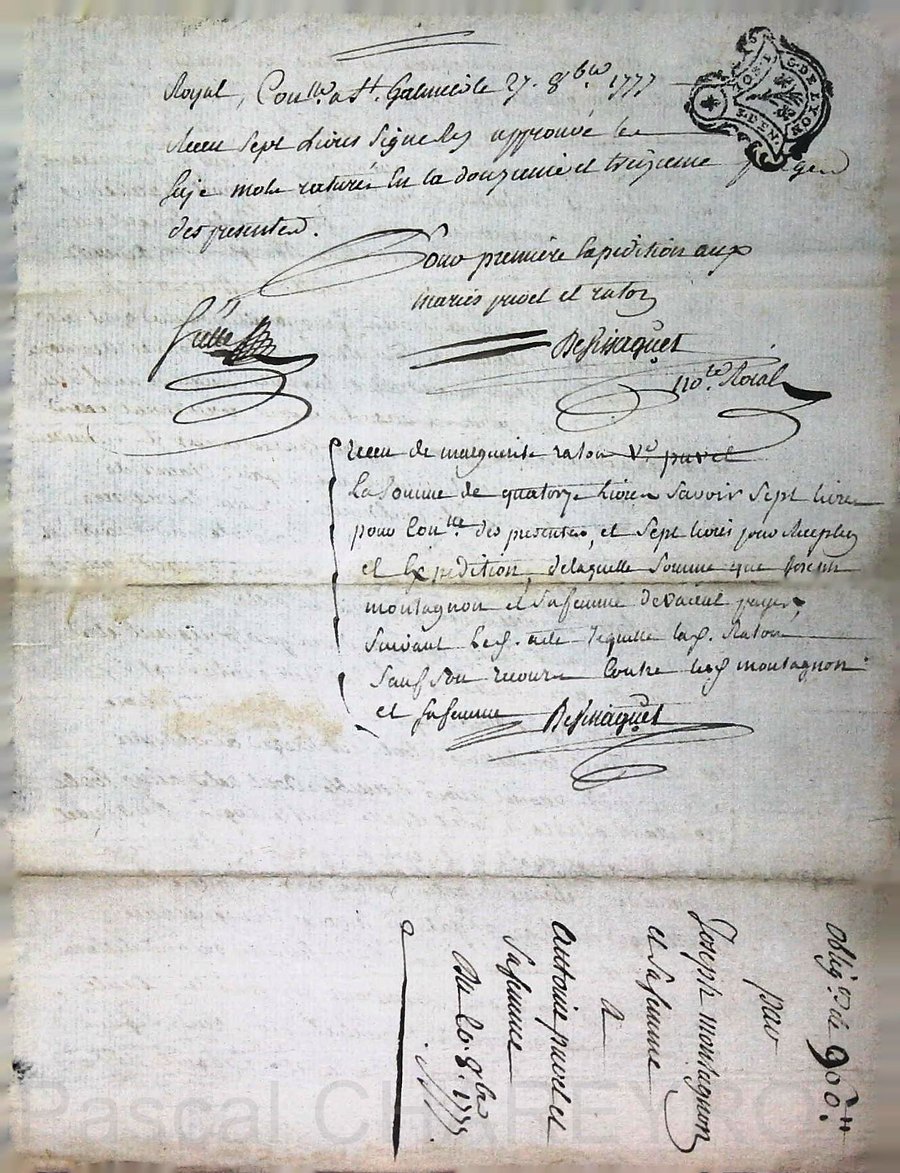 Royal, Con.lle a St. Galmier le 27. 8bre 1777
Receu sept Livres signe approuvé le
mots raturés En la douzieme et treizieme pages
des presentes.
Pour premiere Expedition aux
mariés puvel et raton
Besinaquet
no.re Roial
receu de marguerite raton Ve. puvel
La Somme de quatorze Livres Savoir Sept livres
pour Con.lle des presentes, et Sept livres pour
et Expedition, delaquelle Somme que Joseph
montagnon et Safemme devaient payer,
Suivant acte Raton
Sauf Son recours Contre montagnon
et safemme Besinaquet
Oblig.on de 900.ll
par
Joseph montagnon
et Safemme
a
Antoine puvel et
Safemme
Du 20. 8bre
DE LYON
Pascal CHAREYRON